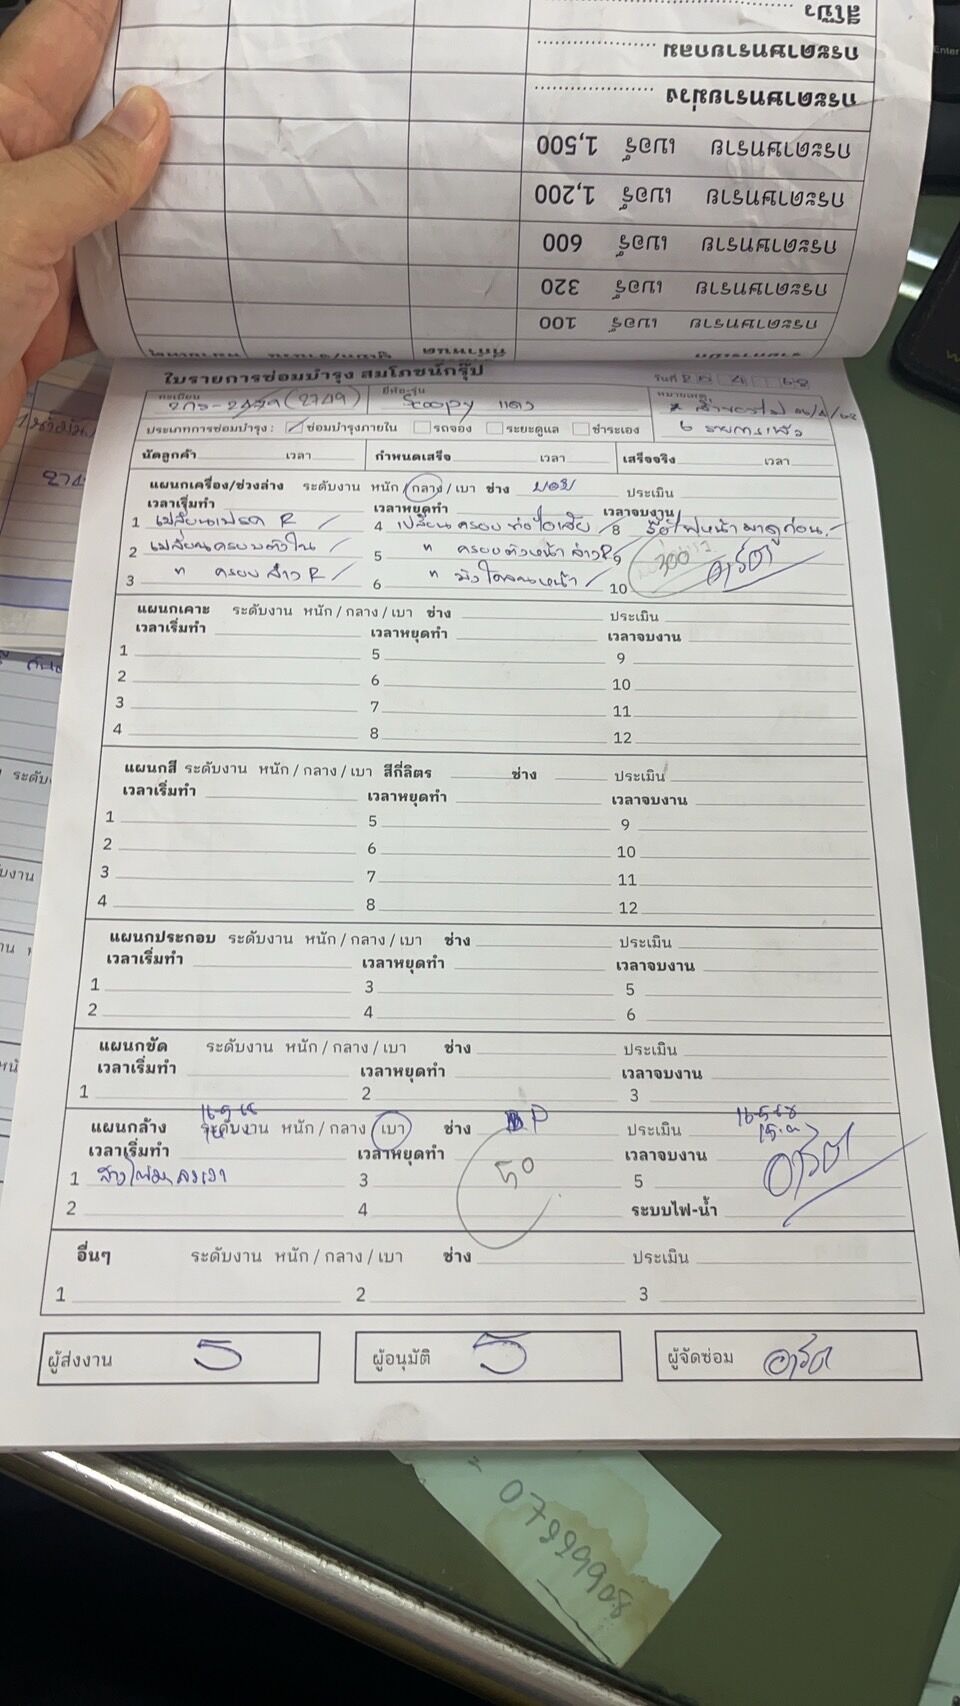 สีโป๊ว
กระดาษทรายกลม
กระดาษทรายม่วง
กระดาษทราย เบอร์ 1,500
กระดาษทราย เบอร์ 1,200
กระดาษทราย เบอร์ 600
กระดาษทราย เบอร์ 320
กระดาษทราย เบอร์ 100
ใบรายการซ่อมบำรุง สมโภชน์กรุ๊ป
วันที่ 4 68
ทะเบียน (2749) ยี่ห้อ-รุ่น Scoopy แดง หมายเหตุ
6 รายการ
ประเภทการซ่อมบำรุง : ซ่อมบำรุงภายใน รถจอง ระยะดูแล ชำระเอง
นัดลูกค้า เวลา กำหนดเสร็จ เวลา เสร็จจริง เวลา
แผนกเครื่อง/ช่วงล่าง ระดับงาน หนัก / กลาง / เบา ช่าง ประเมิน
เวลาเริ่มทำ เวลาหยุดทำ เวลาจบงาน
1 เปลี่ยนเฟรด R 4 เปลี่ยนครอบท่อไอเสีย 8 รื้อไฟหน้ามาดูก่อน
2 เปลี่ยนครอบตัวใน 5 " ครอบตัวหน้าล่าง R 9
3 " ครอบล่าง R 6 " บังโคลนหน้า 10
300
อาร์ต
แผนกเคาะ ระดับงาน หนัก / กลาง / เบา ช่าง ประเมิน
เวลาเริ่มทำ เวลาหยุดทำ เวลาจบงาน
1 5 9
2 6 10
3 7 11
4 8 12
แผนกสี ระดับงาน หนัก / กลาง / เบา สีกี่ลิตร ช่าง ประเมิน
เวลาเริ่มทำ เวลาหยุดทำ เวลาจบงาน
1 5 9
2 6 10
3 7 11
4 8 12
แผนกประกอบ ระดับงาน หนัก / กลาง / เบา ช่าง ประเมิน
เวลาเริ่มทำ เวลาหยุดทำ เวลาจบงาน
1 3 5
2 4 6
แผนกขัด ระดับงาน หนัก / กลาง / เบา ช่าง ประเมิน
เวลาเริ่มทำ เวลาหยุดทำ เวลาจบงาน
1 2 3
16-5-68 16-5-68
แผนกล้าง ระดับงาน หนัก / กลาง / เบา ช่าง P ประเมิน
เวลาเริ่มทำ เวลาหยุดทำ เวลาจบงาน
1 3 50 5 อาร์ต
2 4 ระบบไฟ-น้ำ
อื่นๆ ระดับงาน หนัก / กลาง / เบา ช่าง ประเมิน
1 2 3
ผู้ส่งงาน 5 ผู้อนุมัติ 5 ผู้จัดซ่อม อาร์ต